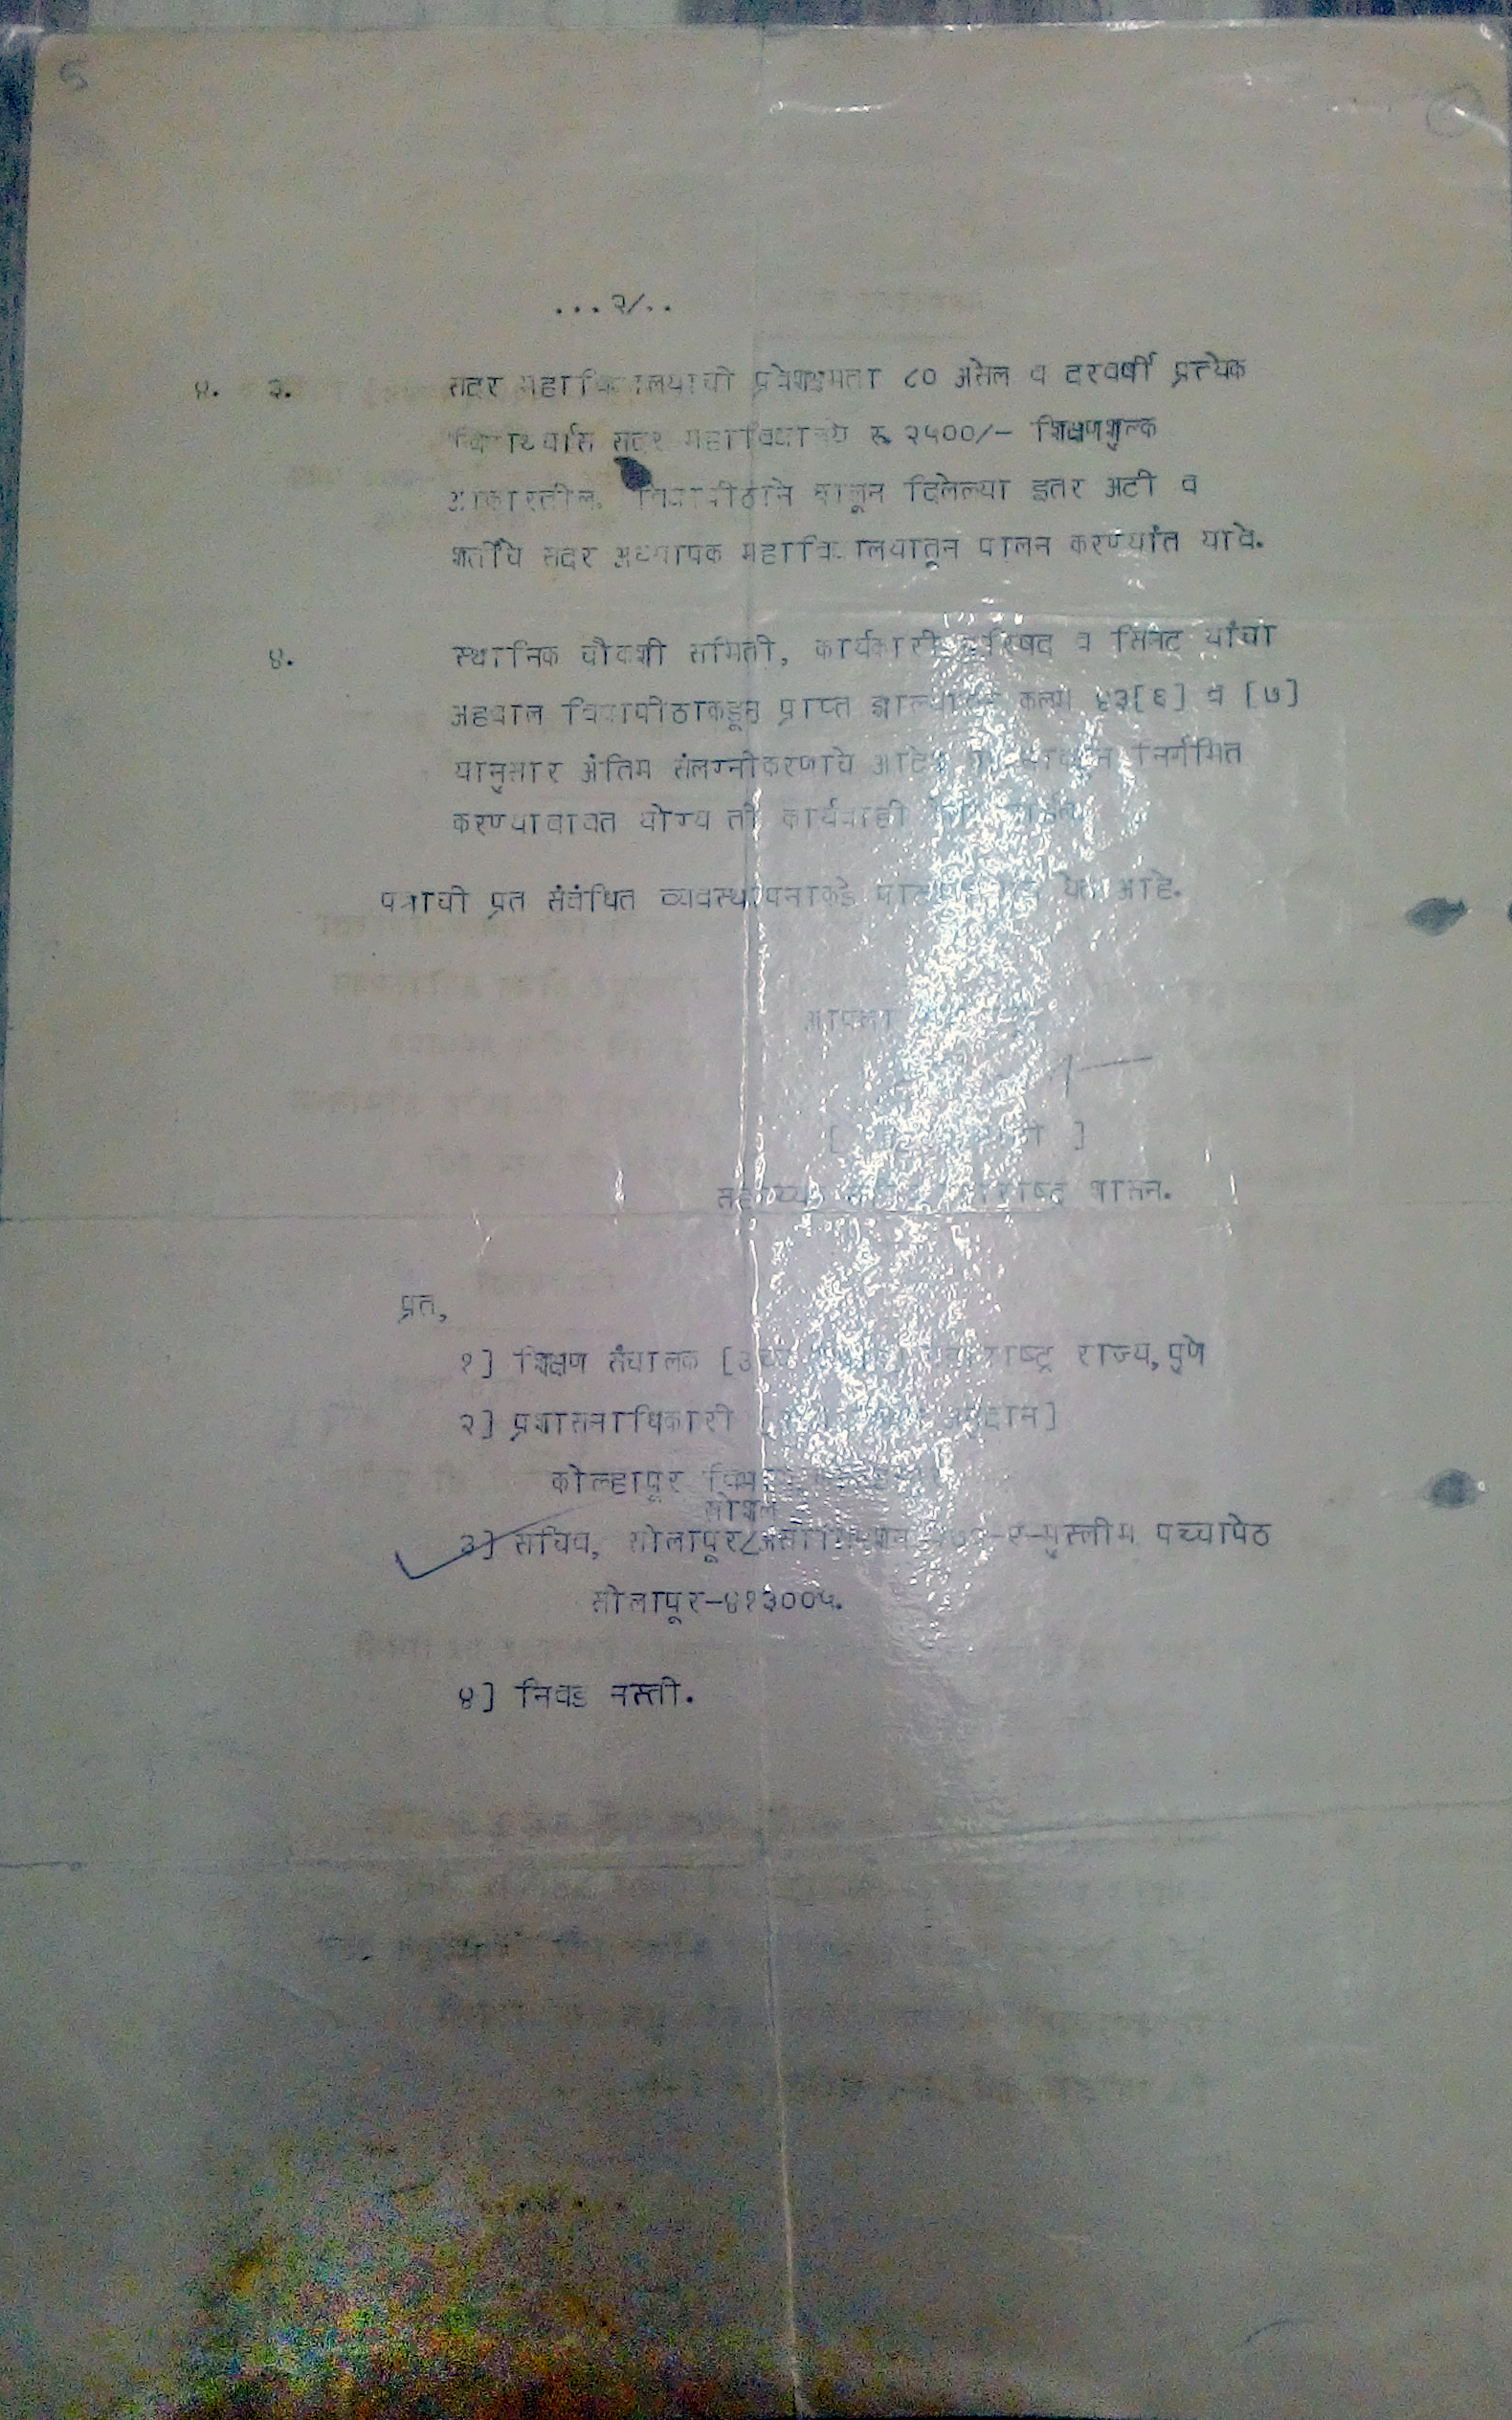 5
...२/..
४. ३. सदर महाविद्यालयाची प्रवेशक्षमता ८० असेल व दरवर्षी प्रत्येक
विद्यार्थ्यास सदर महाविद्यालय रू २५००/- शिक्षणशुल्क
आकारतील. विद्यापीठाने घालून दिलेल्या इतर अटी व
शर्तीचे सदर अध्यापक महाविद्यालयातून पालन करण्यांत यावे.
४. स्थानिक चौकशी समिती, कार्यकारी परिषद व सिनेट यांचा
अहवाल विद्यापीठाकडून प्राप्त झाल्यानंतर कलम ४३[६] व [७]
यानुसार अंतिम संलग्नीकरणाचे आदेश निर्गमित
करण्याबाबत योग्य ती कार्यवाही
पत्राची प्रत संबंधित व्यवस्थापनाकडे येत आहे.
आपला
[ ]
शासन.
प्रत,
१] शिक्षण संचालक [उच्च महाराष्ट्र राज्य, पुणे
२] प्रशासनाधिकारी [ अनुदान]
कोल्हापूर विभाग
सोशल
३] सचिव, सोलापूर असोसिएशन -ए-मुस्लीम पच्चापेठ
सोलापूर-४१३००५.
४] निवड नस्ती.